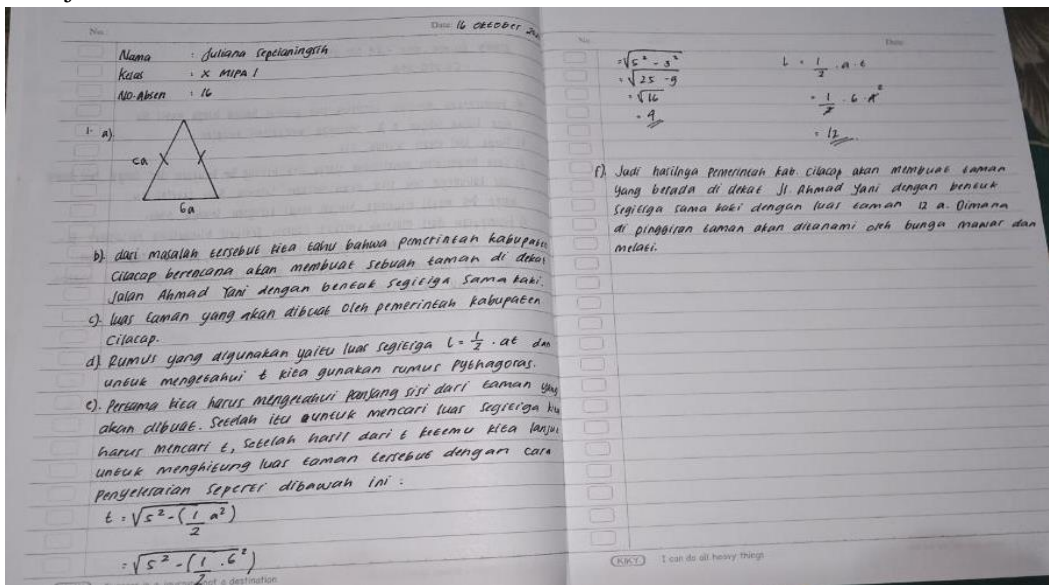 No:
Date: 16 Oktober
Nama : Juliana Septianingsih
Kelas : X MIPA 1
No. Absen : 16
1. a)
6a
b). dari masalah tersebut kita tahu bahwa pemerintah kabupaten
Cilacap berencana akan membuat sebuah taman di dekat
Jalan Ahmad Yani dengan bentuk segitiga sama kaki.
c). luas taman yang akan dibuat oleh pemerintah kabupaten
Cilacap.
d) Rumus yang digunakan yaitu luas segitiga L = 1/2 . at dan
untuk mengetahui t kita gunakan rumus Pythagoras.
e). Pertama kita harus mengetahui panjang sisi dari taman yang
akan dibuat. Setelah itu untuk mencari luas segitiga kita
harus mencari t, setelah hasil dari t ketemu kita lanjut
untuk menghitung luas taman tersebut dengan cara
penyelesaian seperti dibawah ini :
t = √s² - (1/2 a²)
= √5² - (1/2 . 6²)
a destination
No:
Date:
= √5² - 3²
= √25 - 9
= √16
= 4
L = 1/2 . a . t
= 1/2 . 6 . 4²
= 12
f). Jadi hasilnya pemerintah kab. cilacap akan membuat taman
yang berada di dekat Jl. Ahmad Yani dengan bentuk
segitiga sama kaki dengan luas taman 12 a. Dimana
di pinggiran taman akan ditanami oleh bunga mawar dan
melati.
KIKY I can do all heavy things